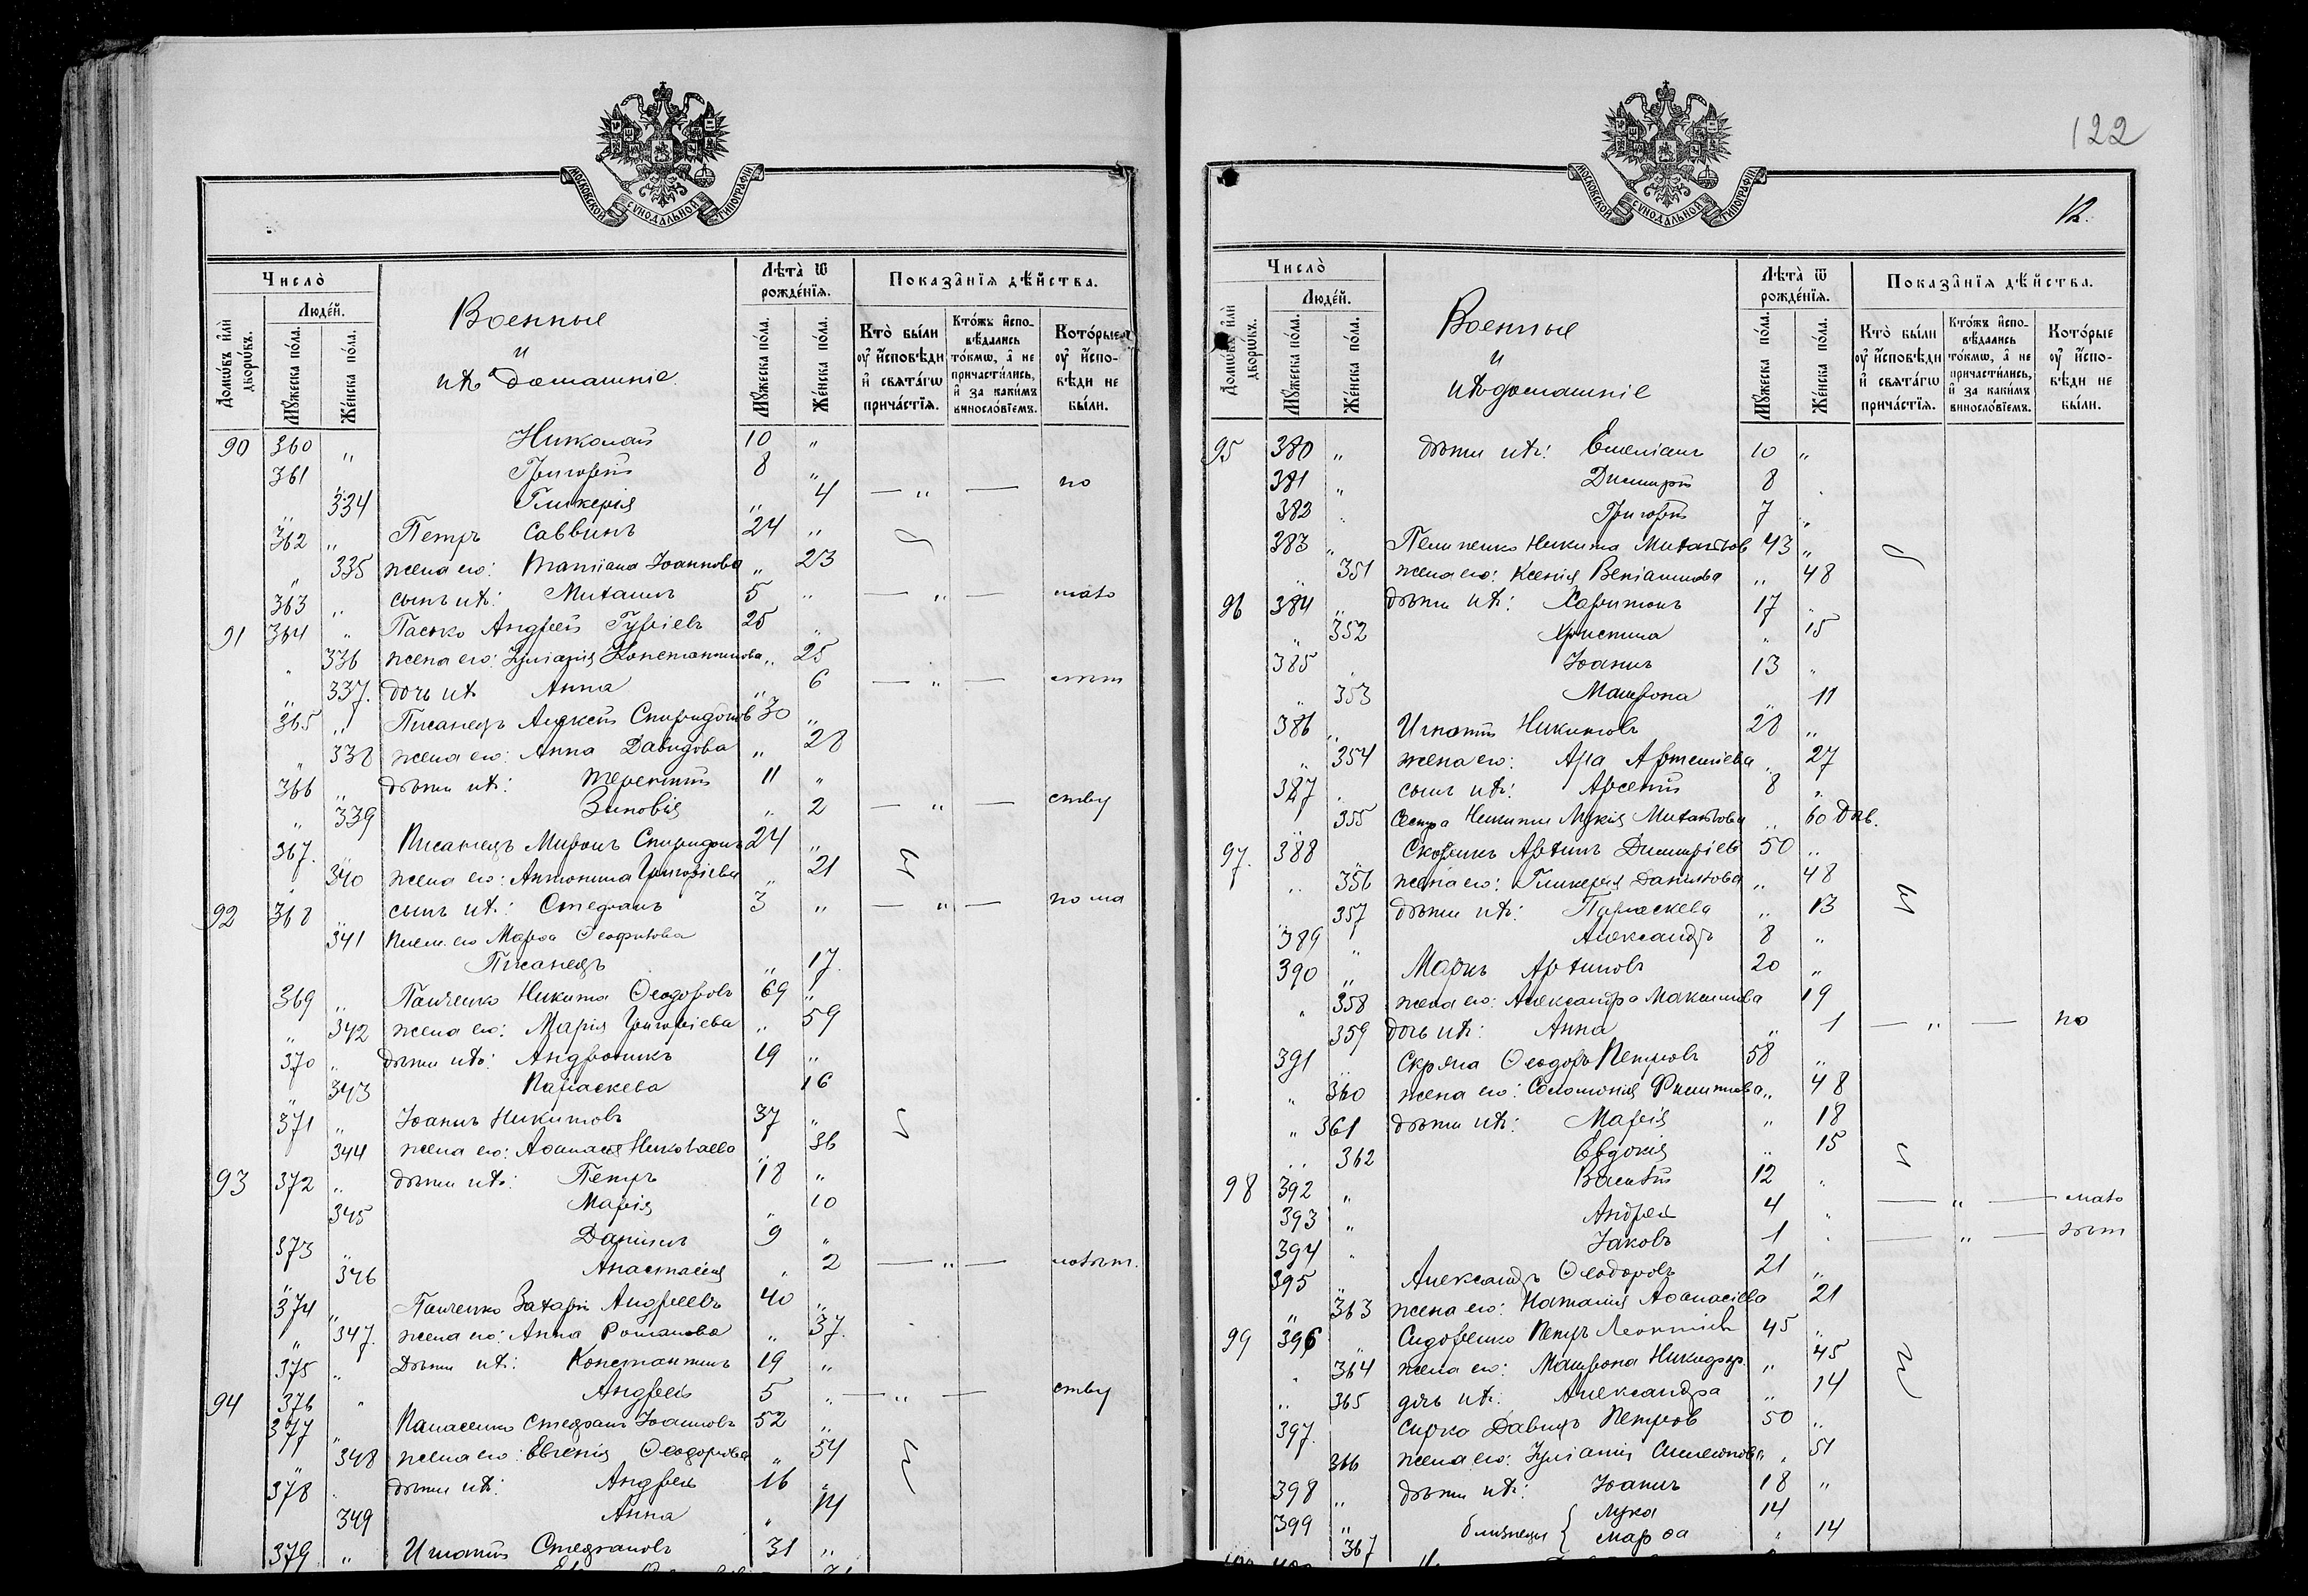 МОСКОВСКОЙ СУНОДАЛЬНОЙ ТИПОГРАФІИ
Число̀
Людéй.
Домѡ́въ и҆лѝ дворѡ́въ.
Мꙋ́жеска по́ла.
Же́нска по́ла.
Военные
и
ихъ домашніе
Лѣ́та ѿ рожде́нїѧ.
Мꙋ́жеска по́ла.
Же́нска по́ла.
Показа̑нїѧ дѣ́йства.
Кто̀ бы́ли оу҆ и҆сповѣ́ди и҆ свѧта́гѡ прича́стїѧ.
Кто́жъ и҆сповѣ́дались то́кмѡ, а҆ не причасти́лись, и҆ за каки́мъ винносло́вїемъ.
Кото́рые оу҆ и҆сповѣ́ди не бы́ли.
90 360 „ Николай 10 „
361 „ Григорій 8 „
„ 334 Гликерія „ 4 — „ — по
362 „ Петръ Саввинъ 24 „
„ 335 жена его: Татіана Іоаннова „ 23
363 „ сынъ ихъ: Михаилъ 5 „ — „ — мало
91 364 „ Пасько Андрей Гуріевъ 25 „
„ 336 жена его: Іуліанія Константинова „ 25
„ 337. дочь ихъ Анна „ 6 — „ —
365 „ Писанецъ Алексѣй Спиридонов 30 „
„ 338 жена его: Анна Давидова „ 28
366 „ дѣти ихъ: Терентій 11 „
„ 339 Зиновія „ 2 — „ — ству
367. „ Писанецъ Миронъ Спиридонъ 24 „
„ 340 жена его: Антонина Григоріева „ 21
92 368 „ сынъ ихъ: Стефанъ 3 „ — „ — по ма
„ 341 Марѳа Ѳеофилова
Писанецъ „ 17.
369 „ Панченко Никита Ѳеодоровъ 69 „
„ 342 жена его: Марія Григоріева „ 59
370 „ дѣти ихъ: Андроникъ 19 „
„ 343 Параскева 16
371 „ Іоаннъ Никитовъ 37 „
„ 344 жена его: Аѳанасія Николаева 36
93 372 „ дѣти ихъ: Петръ 18 „
„ 345 Марія „ 10
373 „ Даніилъ 9 „
„ 346 Анастасія „ 2 — „ — лолѣт.
374 „ Панченко Захарій Андреевъ 40 „
„ 347. жена его: Анна Романова „ 37.
375 „ Дѣти ихъ: Константинъ 19 „
94 376 „ Андрей 5 „ — „ — ству
377 „ Панасенко Стефанъ Іоанновъ 52 „
„ 348 жена его: Евгенія Ѳеодорова „ 54
378 „ дѣти ихъ: Андрей 16 „
349 Анна „ 14
379 „ Игнатій Стефановъ 31 „
122
12.
МОСКОВСКОЙ СУНОДАЛЬНОЙ ТИПОГРАФІИ
Число̀
Людéй.
Домѡ́въ и҆лѝ дворѡ́въ.
Мꙋ́жеска по́ла.
Же́нска по́ла.
Военные
и
ихъ домашніе
Лѣ́та ѿ рожде́нїѧ.
Мꙋ́жеска по́ла.
Же́нска по́ла.
Показа̑нїѧ дѣ́йства.
Кто̀ бы́ли оу҆ и҆сповѣ́ди и҆ свѧта́гѡ прича́стїѧ.
Кто́жъ и҆сповѣ́дались то́кмѡ, а҆ не причасти́лись, и҆ за каки́мъ винносло́вїемъ.
Кото́рые оу҆ и҆сповѣ́ди не бы́ли.
95 380 „ дѣти ихъ: Емеліанъ 10 „
381 „ Димитрій 8
382 „ Григорій 7 „
383 „ Пелипенко Никита Михаиловъ 43 „
„ 351 жена его: Ксенія Веніаминова „ 48
96 384 „ дѣти ихъ: Харитонъ 17 „
„ 352 Христина „ 15
385 „ Іоаннъ 13 „
„ 353 Матрона „ 11
386 „ Игнатій Никитовъ 28 „
„ 354 жена его: Артеміева „ 27
387 „ сынъ ихъ: Арсеній 8 „
„ 355 Сестра Никиты Лукія Михаилова „ 60 Дѣв.
97. 388 Скорикъ Архипъ Димитріевъ 50 „
„ 356 жена его: Гликерія Даниилова „ 48
„ 357 дѣти ихъ: Параскева „ 13
389 „ Александръ 8 „
390 „ Маркъ Архиповъ 20 „
„ 358 жена его: Александра Максимова 19
359 дочь ихъ: Анна „ 1 — „ — по
391 „ Скряга Ѳеодоръ Петровъ 58 „
„ 360 жена его: Соломонія Филиппова „ 48
„ 361 дѣти ихъ: Марія „ 18
„ 362 Евдокія „ 15
98 392 „ Василій 12 „
393 „ Андрей 4 „ — „ — мало
394 „ Іаковъ 1 „ — „ — лѣт
395 „ Александръ Ѳеодоровъ 21 „
„ 363 жена его: Наталія Аѳанасіева 21
99 396 „ Сидоренко Петръ Леонтіев 45 „
„ 364 жена его: Матрона Никифор. „ 45
„ 365 дочь ихъ: Александра „ 14
397. Сирко Давидъ Петровъ 50 „
366 жена его: Іуліанія Симеонова „ 51
398 „ дѣти ихъ: Іоаннъ 18 „
399 „ близнецы { Лука 14
367 Марѳа „ 14